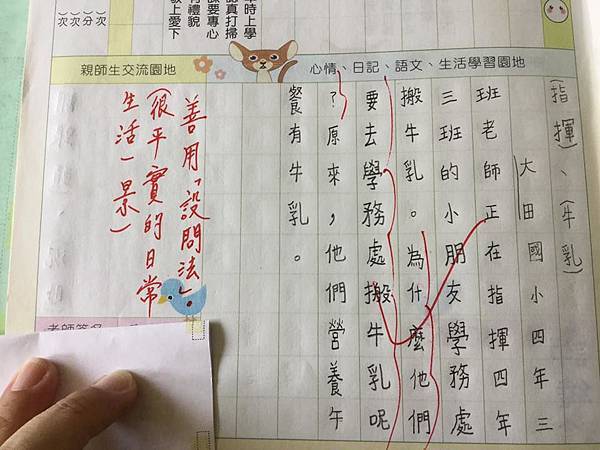 時上學
真打掃
要專心
有禮貌
上愛下
)次
)分
)次
)次
心情、日記、語文、生活學習園地
親師生交流園地
(指揮)、(牛乳)
大田國小四年三
班老師正在指揮四年
三班的小朋友學務處
搬牛乳。為什麼他們
要去學務處搬牛乳呢
?原來,他們營養午
餐有牛乳。
善用「設問法」
(很平實的日常
生活一景)